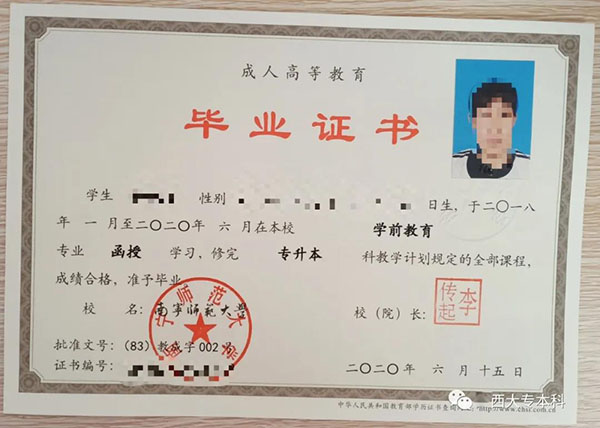 成人高等教育
毕业证书
学生 性别 日生，于二〇一八
年 一 月至二〇二〇年 六 月在本校 学前教育
专业 函授 学习，修完 专升本 科教学计划规定的全部课程，
成绩合格，准予毕业。
校 名：南宁师范大学
校（院）长： 李传起
批准文号：(83)教成字002号
证书编号：
二〇二〇年 六 月 十五 日
中华人民共和国教育部学历证书查询网址：http://www.chsi.com.cn
西大专本科